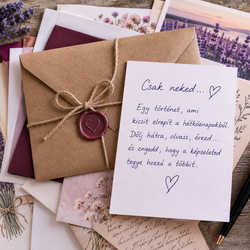 Csak neked... ♡
Egy történet, ami
kicsit elrepít a hétköznapokból.
Dőlj hátra, olvass, érezd...
és engedd, hogy a képzeleted
tegye hozzá a többit.